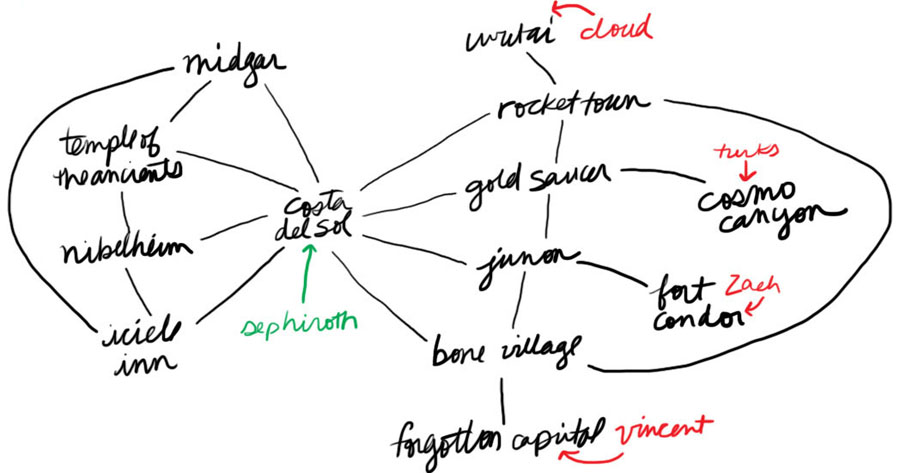 wutai
cloud
midgar
rocket town
temple of
the ancients
turks
gold saucer
cosmo
canyon
costa
del sol
nibelheim
junon
fort
Zach
condor
sephiroth
icicle
inn
bone village
forgotten capital
vincent